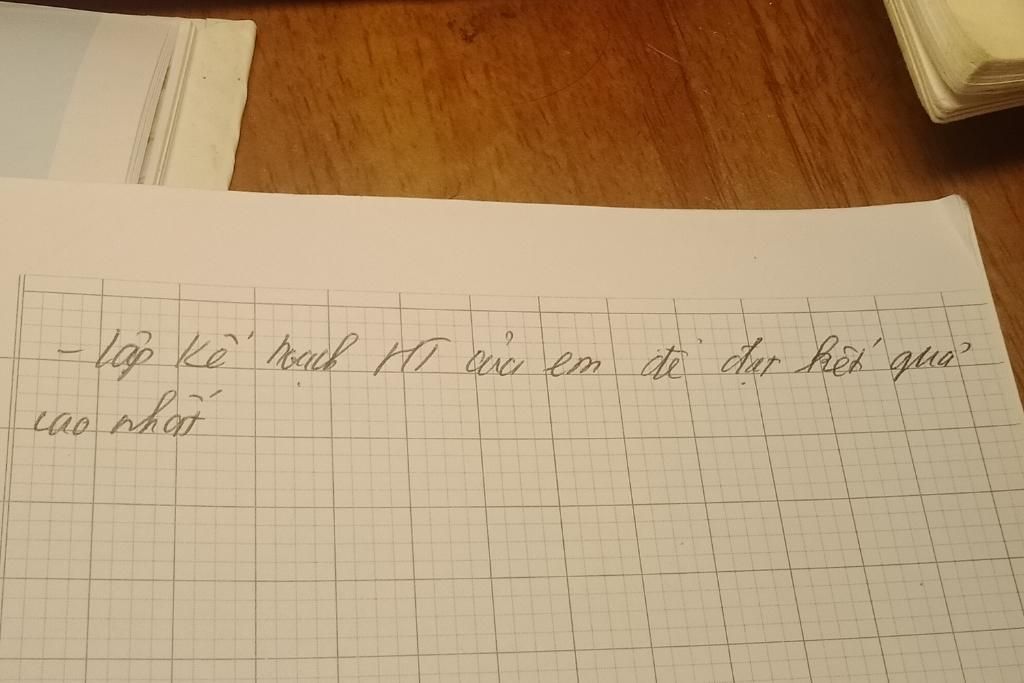 - Lập kế hoạch HT của em để đạt kết quả
cao nhất